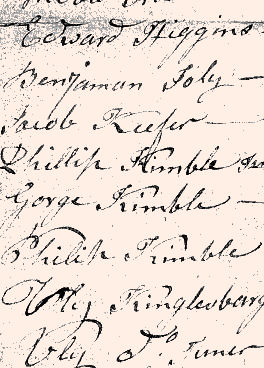 Edward Higgins
Benjaman Joly
Jacob Keefer
Phillip Kimble
Gorge Kimble
Philip Kimble
Uly Kinglesbarg
Uly Do. Juner